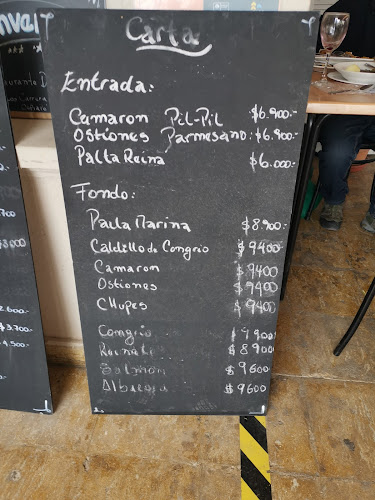 Carta
Entrada:
Camaron Pil-Pil $6.900.-
Ostiones Parmesano: $6.900-
Palta Reina $6.000.-
Fondo:
Paila Marina $8.900.-
Caldillo de Congrio $9400-
Camaron $9400
Ostiones $9400
CHupes $9400
Congrio $9900
Reineta $8900
Salmon $9600
Albacora $9600
$3.700-